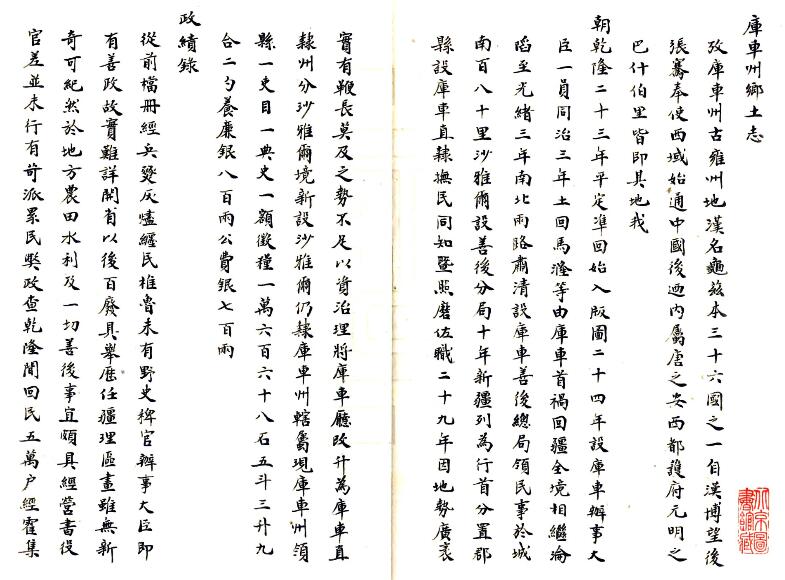 庫車州鄉土志
攷庫車州古雍州地漢名龜茲本三十六國之一自漢博望後
張騫奉使西域始通中國後迺內屬唐之安西都護府元明之
巴什伯里皆即其地我
朝乾隆二十三年平定準回始入版圖二十四年設庫車辦事大
臣一員同治三年土回馬漋等由庫車首禍回疆全境相繼淪
陷至光緒三年南北兩路肅清設庫車善後總局領民事於城
南百八十里沙雅爾設善後分局十年新疆列為行首分置郡
縣設庫車直隸撫民同知暨照磨佐職二十九年因地勢廣袤
實有鞭長莫及之勢不足以資治理將庫車廳改升為庫車直
隸州分沙雅爾境新設沙雅爾仍隸庫車州轄屬現庫車州領
縣一吏目一典史一額徵糧一萬六百六十八石五斗三升九
合二勺養廉銀八百兩公費銀七百兩
政績錄
從前檔冊經兵燹灰燼纏民椎魯未有野史稗官辦事大臣即
有善政故實難詳開省以後百廢具舉歷任疆理區畫雖無新
奇可紀然於地方農田水利及一切善後事宜頗具經營書役
官差並未行有苛派累民獘政查乾隆閒回民五萬户經霍集
北京圖
書館藏